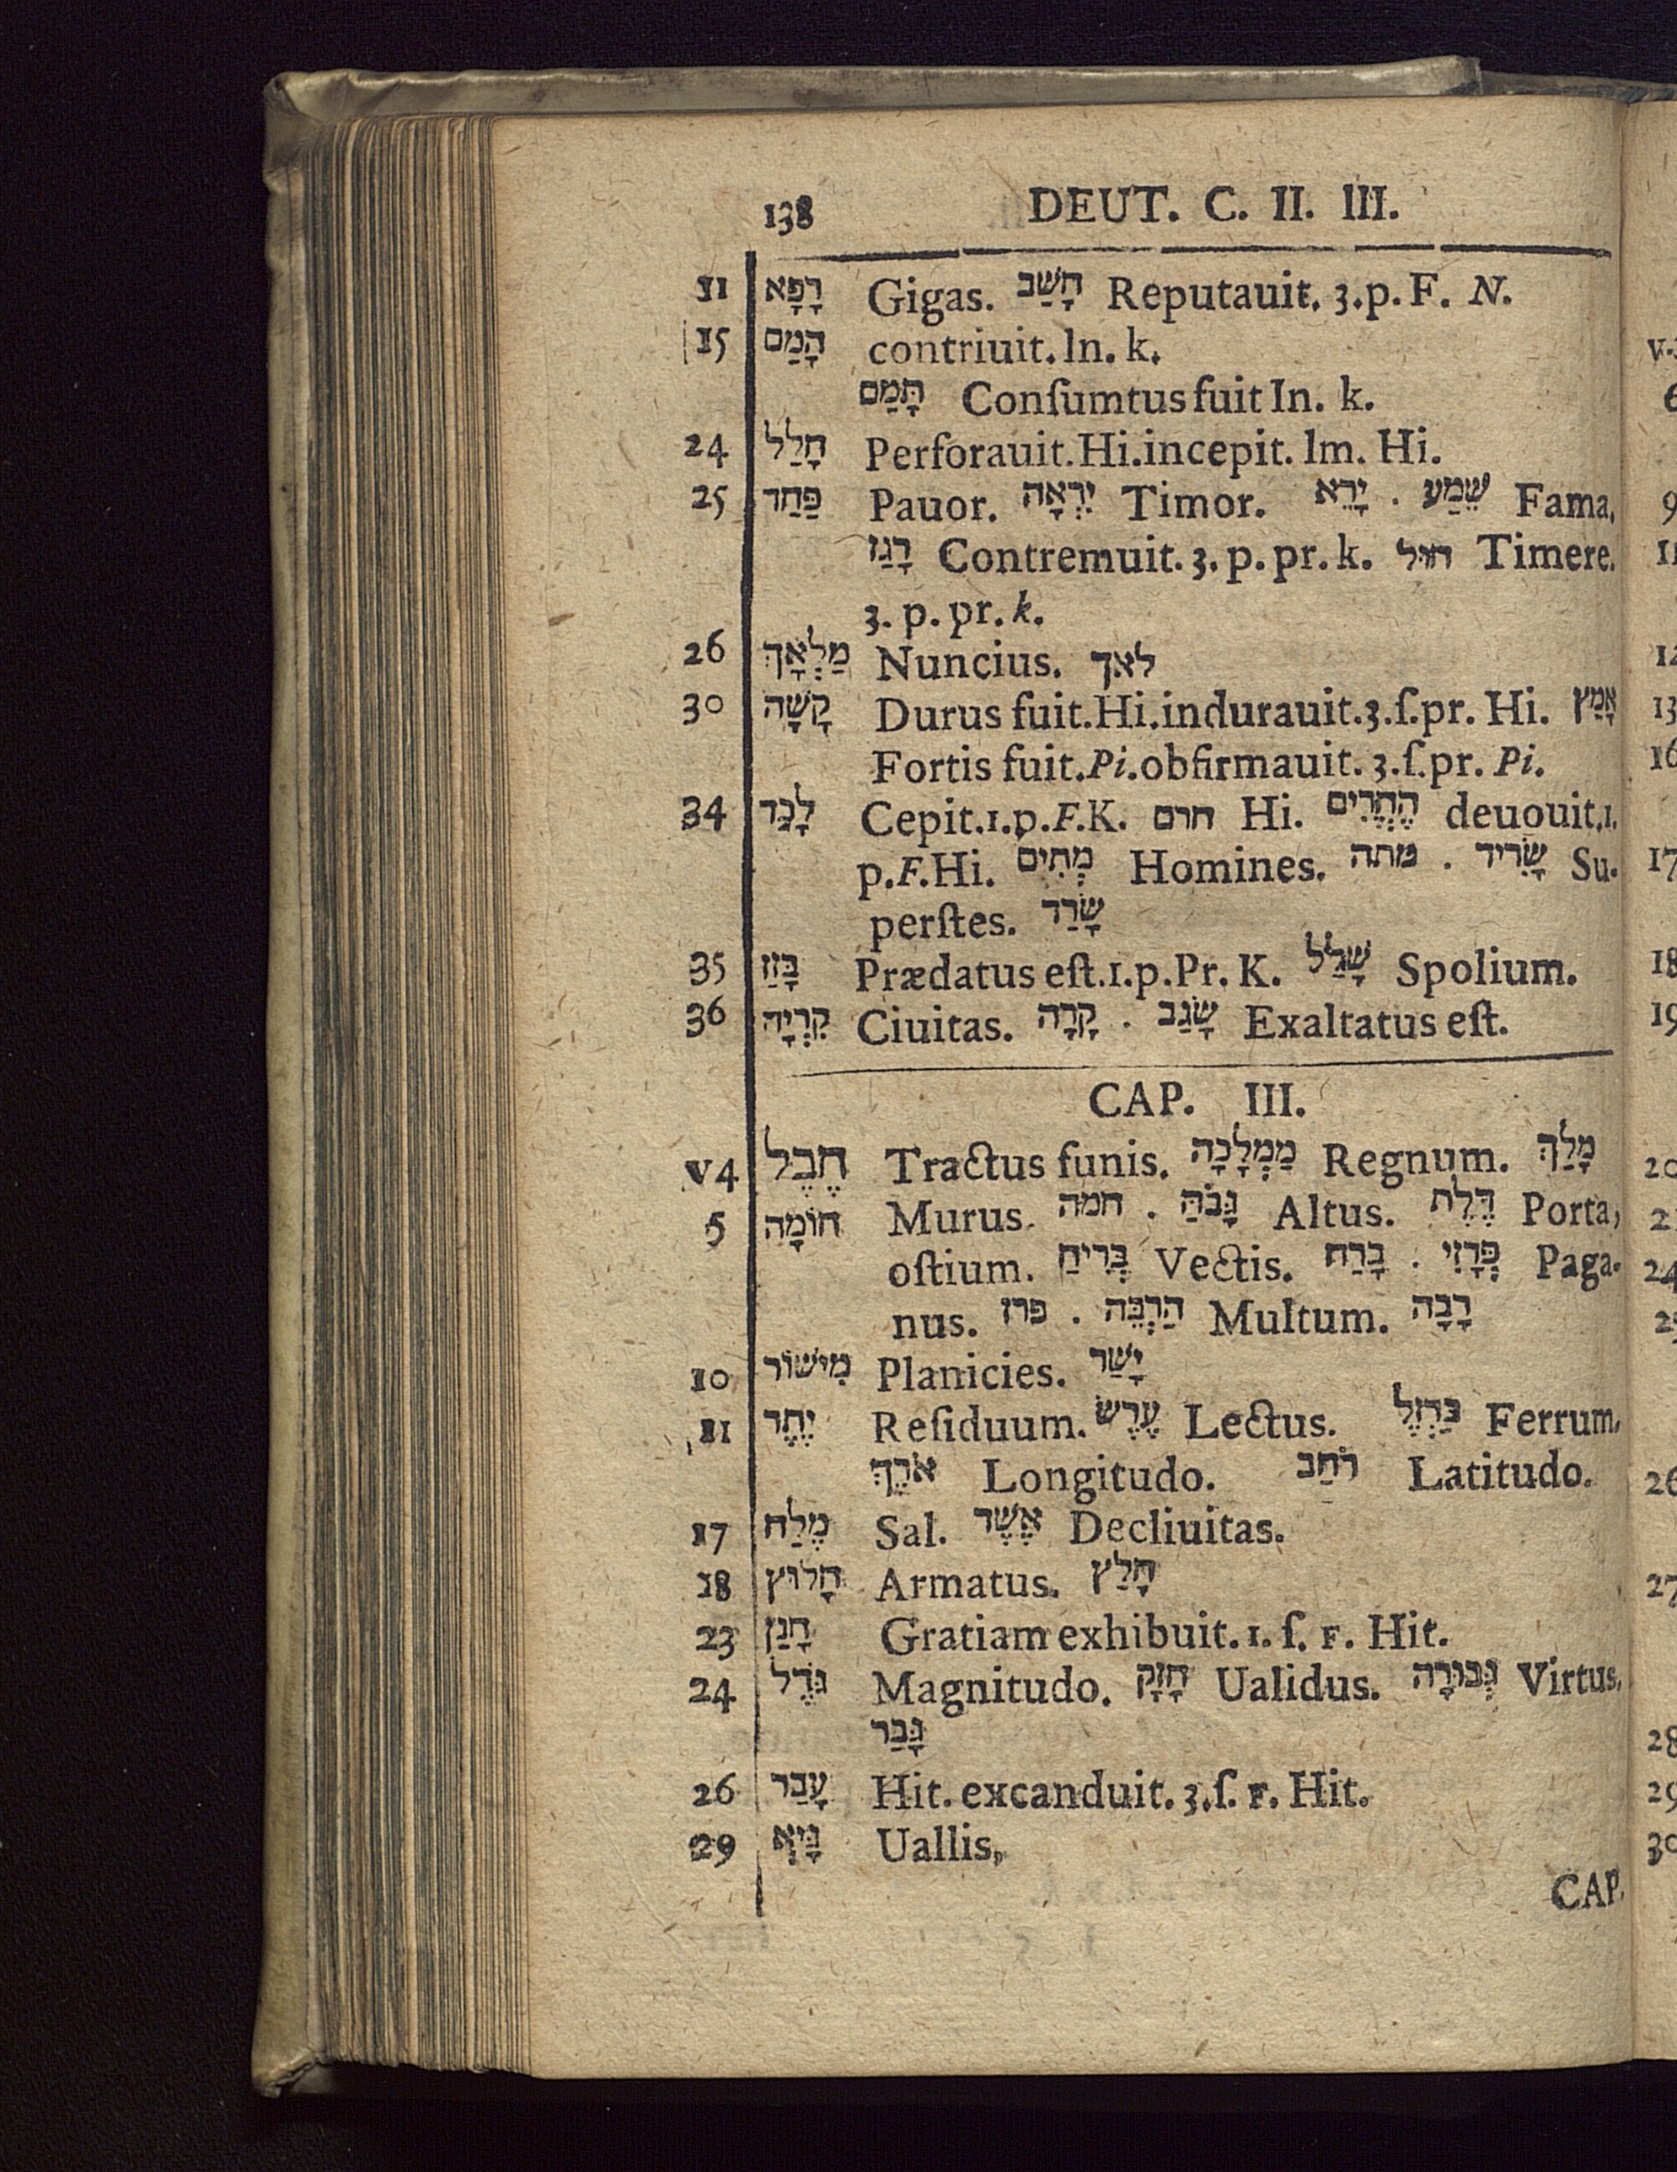 138 DEUT. C. II. III.
11 רָפָא Gigas. חָשַׁב Reputauit. 3.p. F. N.
15 הָמַם contriuit. In. k.
תָּמַם Conſumtus fuit In. k.
24 חָלַל Perforauit. Hi. incepit. Im. Hi.
25 פַּחַד Pauor. יִרְאָה Timor. יָרֵא . שֵׁמַע Fama,
רָגַז Contremuit. 3. p. pr. k. חול Timere.
3. p. pr. k.
26 מַלְאָךְ Nuncius. לאך
30 קָשָׁה Durus fuit. Hi. indurauit. 3. ſ. pr. Hi. אָמַץ
Fortis fuit. Pi. obfirmauit. 3. ſ. pr. Pi.
34 לָכַד Cepit. 1. p. F. K. חרם Hi. הֶחֱרִים deuouit, 1.
p. F. Hi. מְתִים Homines. מתה . שָׂרִיד Su-
perſtes. שָׂרַד
35 בָּזַז Prædatus eſt. 1. p. Pr. K. שָׁלַל Spolium.
36 קִרְיָה Ciuitas. קָרָה . שָׂגַב Exaltatus eſt.
CAP. III.
v4 חֶבֶל Tractus funis. מַמְלָכָה Regnum. מָלַךְ
5 חוֹמָה Murus. חמה . גָּבֹהַּ Altus. דֶּלֶת Porta,
oſtium. בְּרִיחַ Vectis. בָּרַח . פְּרָזִי Paga-
nus. פרז . הַרְבֵּה Multum. רָבָה
10 מִישׁוֹר Planicies. יָשַׁר
11 יֶתֶר Reſiduum. עֶרֶשׂ Lectus. בַּרְזֶל Ferrum,
אֹרֶךְ Longitudo. רֹחַב Latitudo.
17 מֶלַח Sal. אֶשֶׁד Decliuitas.
18 חָלוּץ Armatus. חָלַץ
23 חָנַן Gratiam exhibuit. 1. ſ. F. Hit.
24 גֹּדֶל Magnitudo. חָזָק Ualidus. גְּבוּרָה Virtus,
גָּבַר
26 עָבַר Hit. excanduit. 3. ſ. F. Hit.
29 גַּיְא Uallis,
CAP.